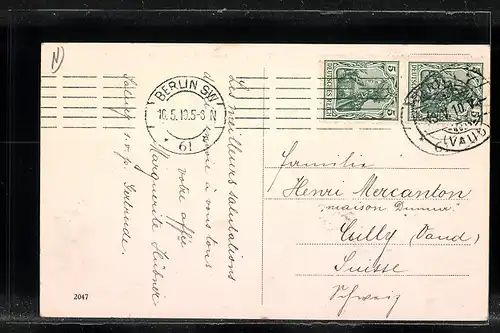 BERLIN SW
16.5.10.5-6 N
* 61 *
DEUTSCHES REICH
5 5
DEUTSCHES REICH
(VAUD)
Les meilleurs salutations
à vous tous
votre
Marguerite Hübner
s.v.p. Gertrude.
Familie
Henri Mercanton
"maison
Cully (Vaud)
Suisse
Schweiz
2047